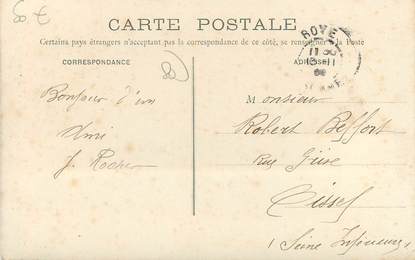 50 €
CARTE POSTALE
Certains pays étrangers n'acceptant pas la correspondance de ce côté, se renseigner à la Poste
CORRESPONDANCE
ADRESSE
ROYE
SOMME
Bonjour d'un
Ami
J. Rocher
Monsieur
Robert Beffort
Rue
Oissel
Seine Inférieure